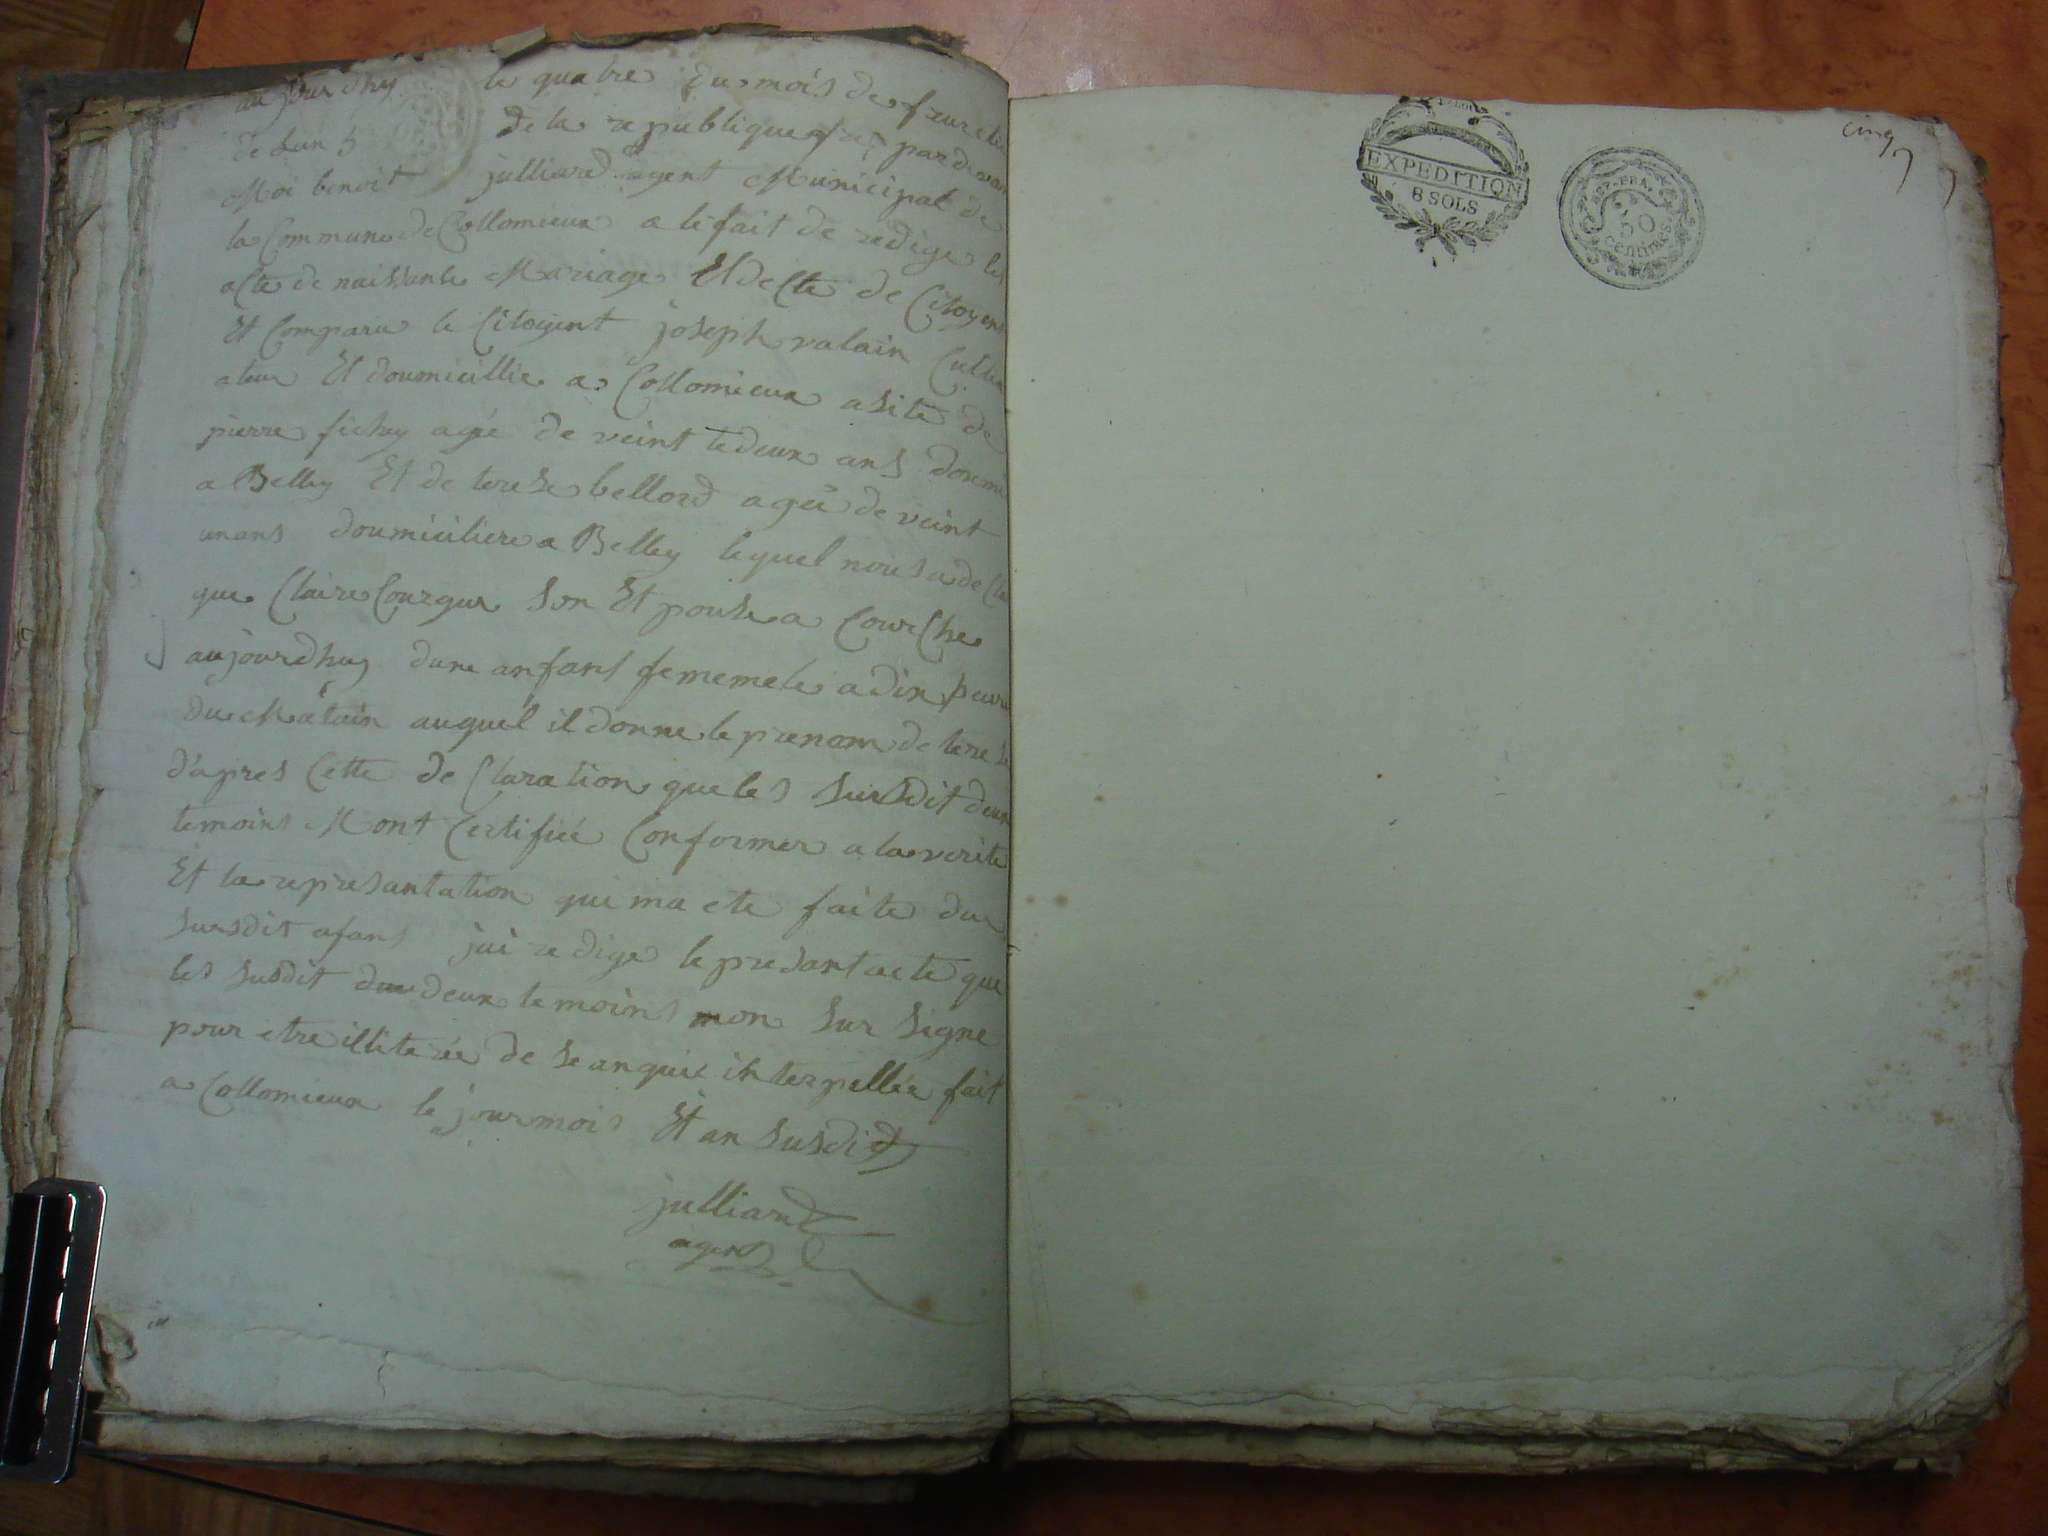 aujourdhuy le quatre du mois de fruction
de Lan 5 de la republique fr par devan
Moi benoit julliard agent Municipal de
la Commune de Collomieux a lefait de redige les
acte de naissanse Mariage Et decte de Citoyens
Et Comparu le Citoyent joseph valain Culliv
ateur Et doumicillie a Collomieux asite de
pierre fichey agé de veint tedeux ans doumi
a Belley Et de terese bellord ageé de veint
unans doumiciliere a Belley lequel nous a decla
que Claire Courgue Son Et pouse a Courche
aujourdhuy dune anfans fememele a dix heure
du Matain auquel il donne le prenom de terese
d'apres Cette de Claration que les Sursdit deux
temoins Mont Certifiée Conformer a la verite
Et la represantation qui ma ete faite du
Sursdit afans jai redige le presant acte que
les Susdit deux temoins mon Sur Signe
pour etre illiterée de Se anquis interpellée fait
a Collomieux le jour mois Et an Susdit
julliard
agent
cinq
EXPEDITION
8 SOLS
50
centimes